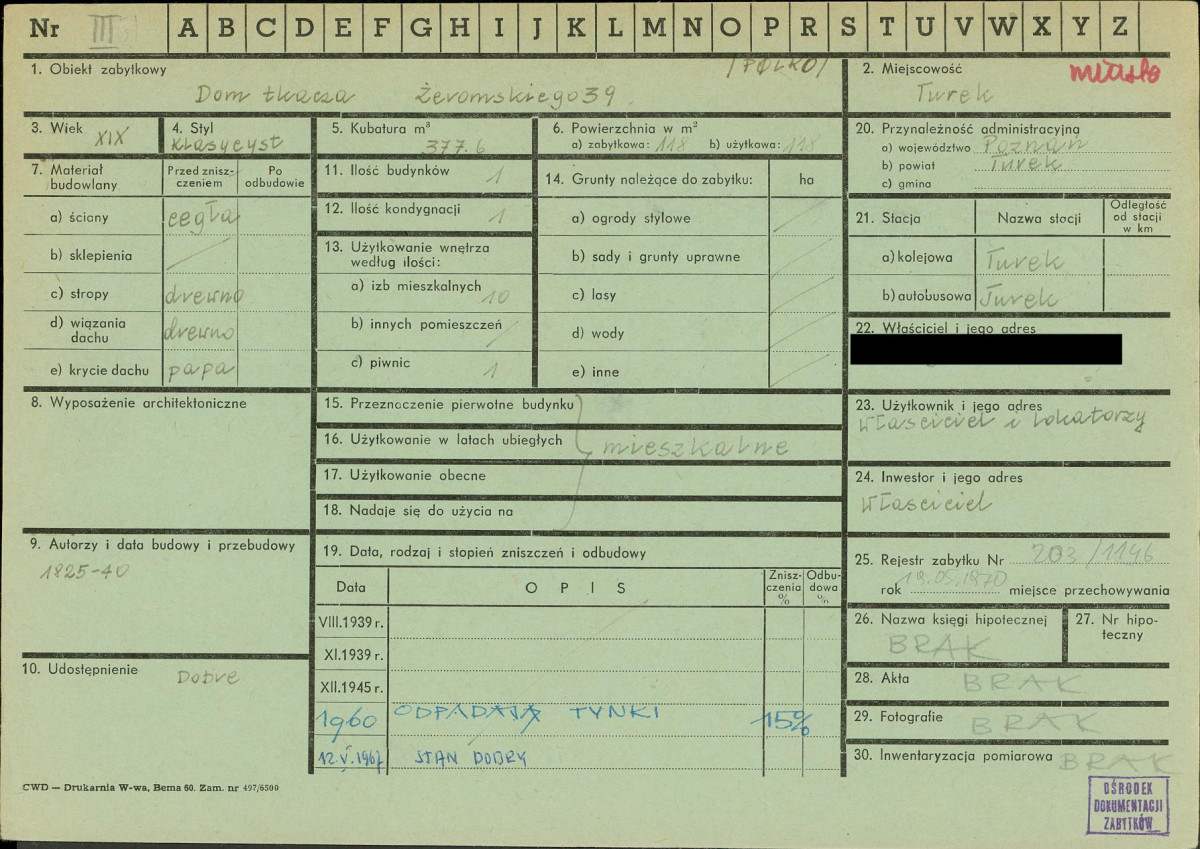 Nr III A B C D E F G H I J K L M N O P R S T U V W X Y Z
1. Obiekt zabytkowy /POLKO/
Dom tkacza Żeromskiego 39
2. Miejscowość miasto
Turek
3. Wiek XIX
4. Styl klasycyst
5. Kubatura m³
377.6
6. Powierzchnia w m²
a) zabytkowa: 118 b) użytkowa: 118
20. Przynależność administracyjna
a) województwo Poznań
b) powiat Turek
c) gmina
7. Materiał budowlany
Przed zniszczeniem
Po odbudowie
a) ściany cegła
b) sklepienia /
c) stropy drewno
d) wiązania dachu drewno
e) krycie dachu papa
11. Ilość budynków 1
12. Ilość kondygnacji 1
13. Użytkowanie wnętrza
według ilości:
a) izb mieszkalnych 10
b) innych pomieszczeń /
c) piwnic 1
14. Grunty należące do zabytku: ha
a) ogrody stylowe /
b) sady i grunty uprawne /
c) lasy /
d) wody /
e) inne /
21. Stacja Nazwa stacji Odległość od stacji w km
a) kolejowa Turek
b) autobusowa Turek
22. Właściciel i jego adres
8. Wyposażenie architektoniczne
15. Przeznaczenie pierwotne budynku
16. Użytkowanie w latach ubiegłych mieszkalne
17. Użytkowanie obecne
18. Nadaje się do użycia na
23. Użytkownik i jego adres
właściciel i lokatorzy
24. Inwestor i jego adres
właściciel
9. Autorzy i data budowy i przebudowy
1825-40
19. Data, rodzaj i stopień zniszczeń i odbudowy
Data OPIS Zniszczenia % Odbudowa %
VIII.1939 r.
XI.1939 r.
XII.1945 r.
1960 ODPADAJĄ TYNKI 15%
12.V.1967 STAN DOBRY
25. Rejestr zabytku Nr 203/1146
rok 19.05.1970 miejsce przechowywania
26. Nazwa księgi hipotecznej
BRAK
27. Nr hipoteczny
10. Udostępnienie Dobre
28. Akta BRAK
29. Fotografie BRAK
30. Inwentaryzacja pomiarowa BRAK
CWD — Drukarnia W-wa, Bema 60. Zam. nr 497/6500
OŚRODEK
DOKUMENTACJI
ZABYTKÓW